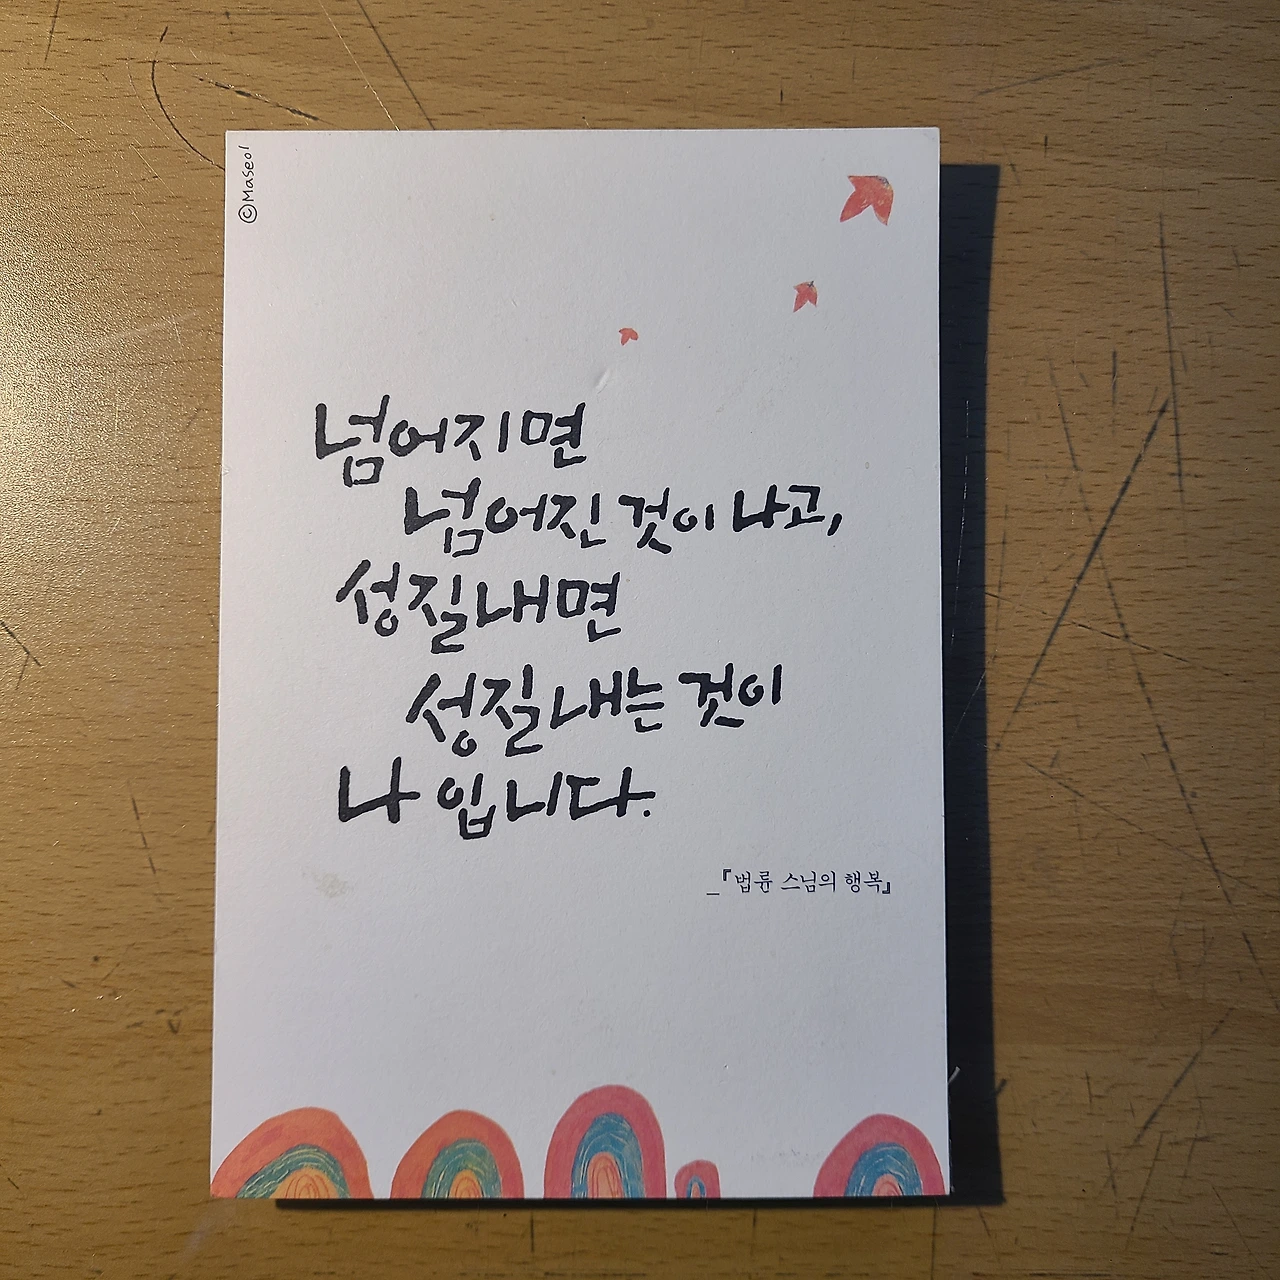 ©Maseol
넘어지면
넘어진 것이 나고,
성질내면
성질내는 것이
나 입니다.
_『법륜 스님의 행복』